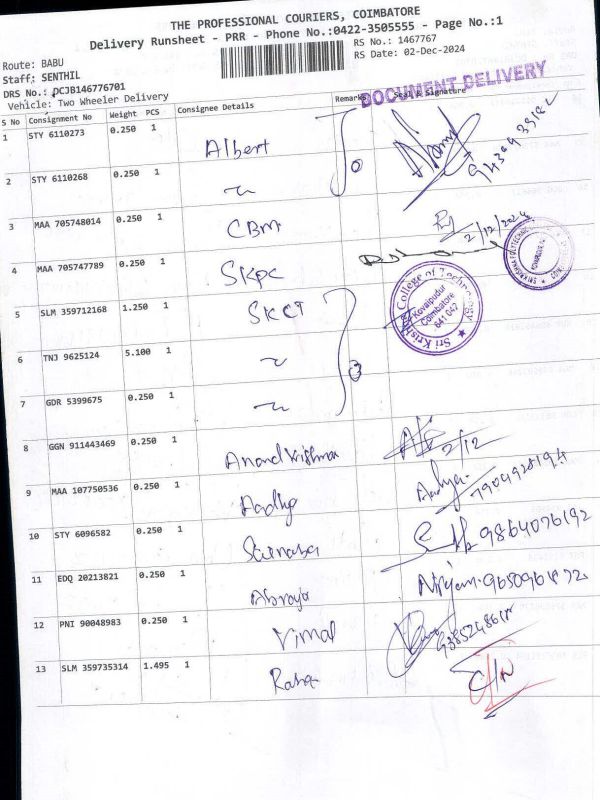 THE PROFESSIONAL COURIERS, COIMBATORE
Delivery Runsheet - PRR - Phone No.:0422-3505555 - Page No.:1
Route: BABU
RS No.: 1467767
Staff: SENTHIL
RS Date: 02-Dec-2024
DRS No.: PC3B146776701
Vehicle: Two Wheeler Delivery
DOCUMENT DELIVERY
S No Consignment No Weight PCS Consignee Details Remarks Seal & Signature
1 STY 6110273 0.250 1 Albert
2 STY 6110268 0.250 1 ~
3 MAA 705748014 0.250 1 CBM 2/12/2024
4 MAA 705747789 0.250 1 SKPC
5 SLM 359712168 1.250 1 SKCT
Sri Krishna College of Technology
Kovaipudur
Coimbatore
641 042
6 TNJ 9625124 5.100 1 ~
3
7 GDR 5399675 0.250 1 ~
8 GGN 911443469 0.250 1 Anand Krishnan 2/12
9 MAA 107750536 0.250 1 Aadhya Aadhya 7904928194
10 STY 6096582 0.250 1 9864076192
11 EDQ 20213821 0.250 1
12 PNI 90048983 0.250 1 Vimal
13 SLM 359735314 1.495 1